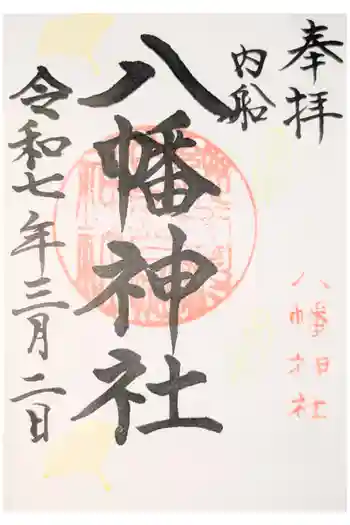 奉拝
内船
八幡神社
令和七年三月二日
八幡神社